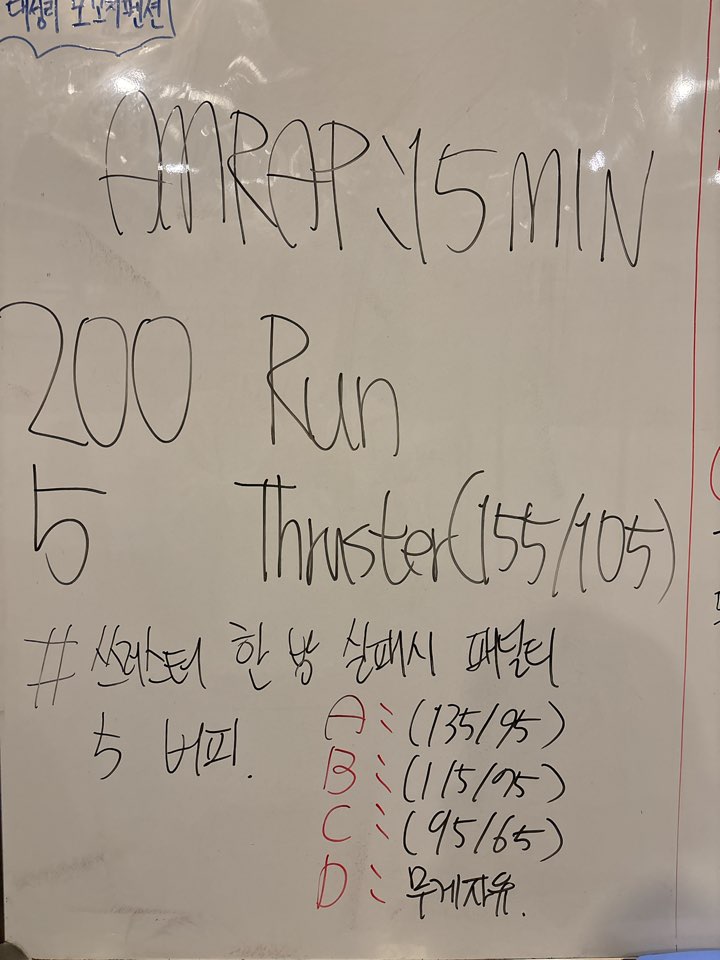 대성리
AMRAP:15MIN
200 Run
5 Thruster(155/105)
# 쓰러스터 한 방 실패시 패널티
5 버피.
A: (135/95)
B: (115/75)
C: (95/65)
D: 무게자유.